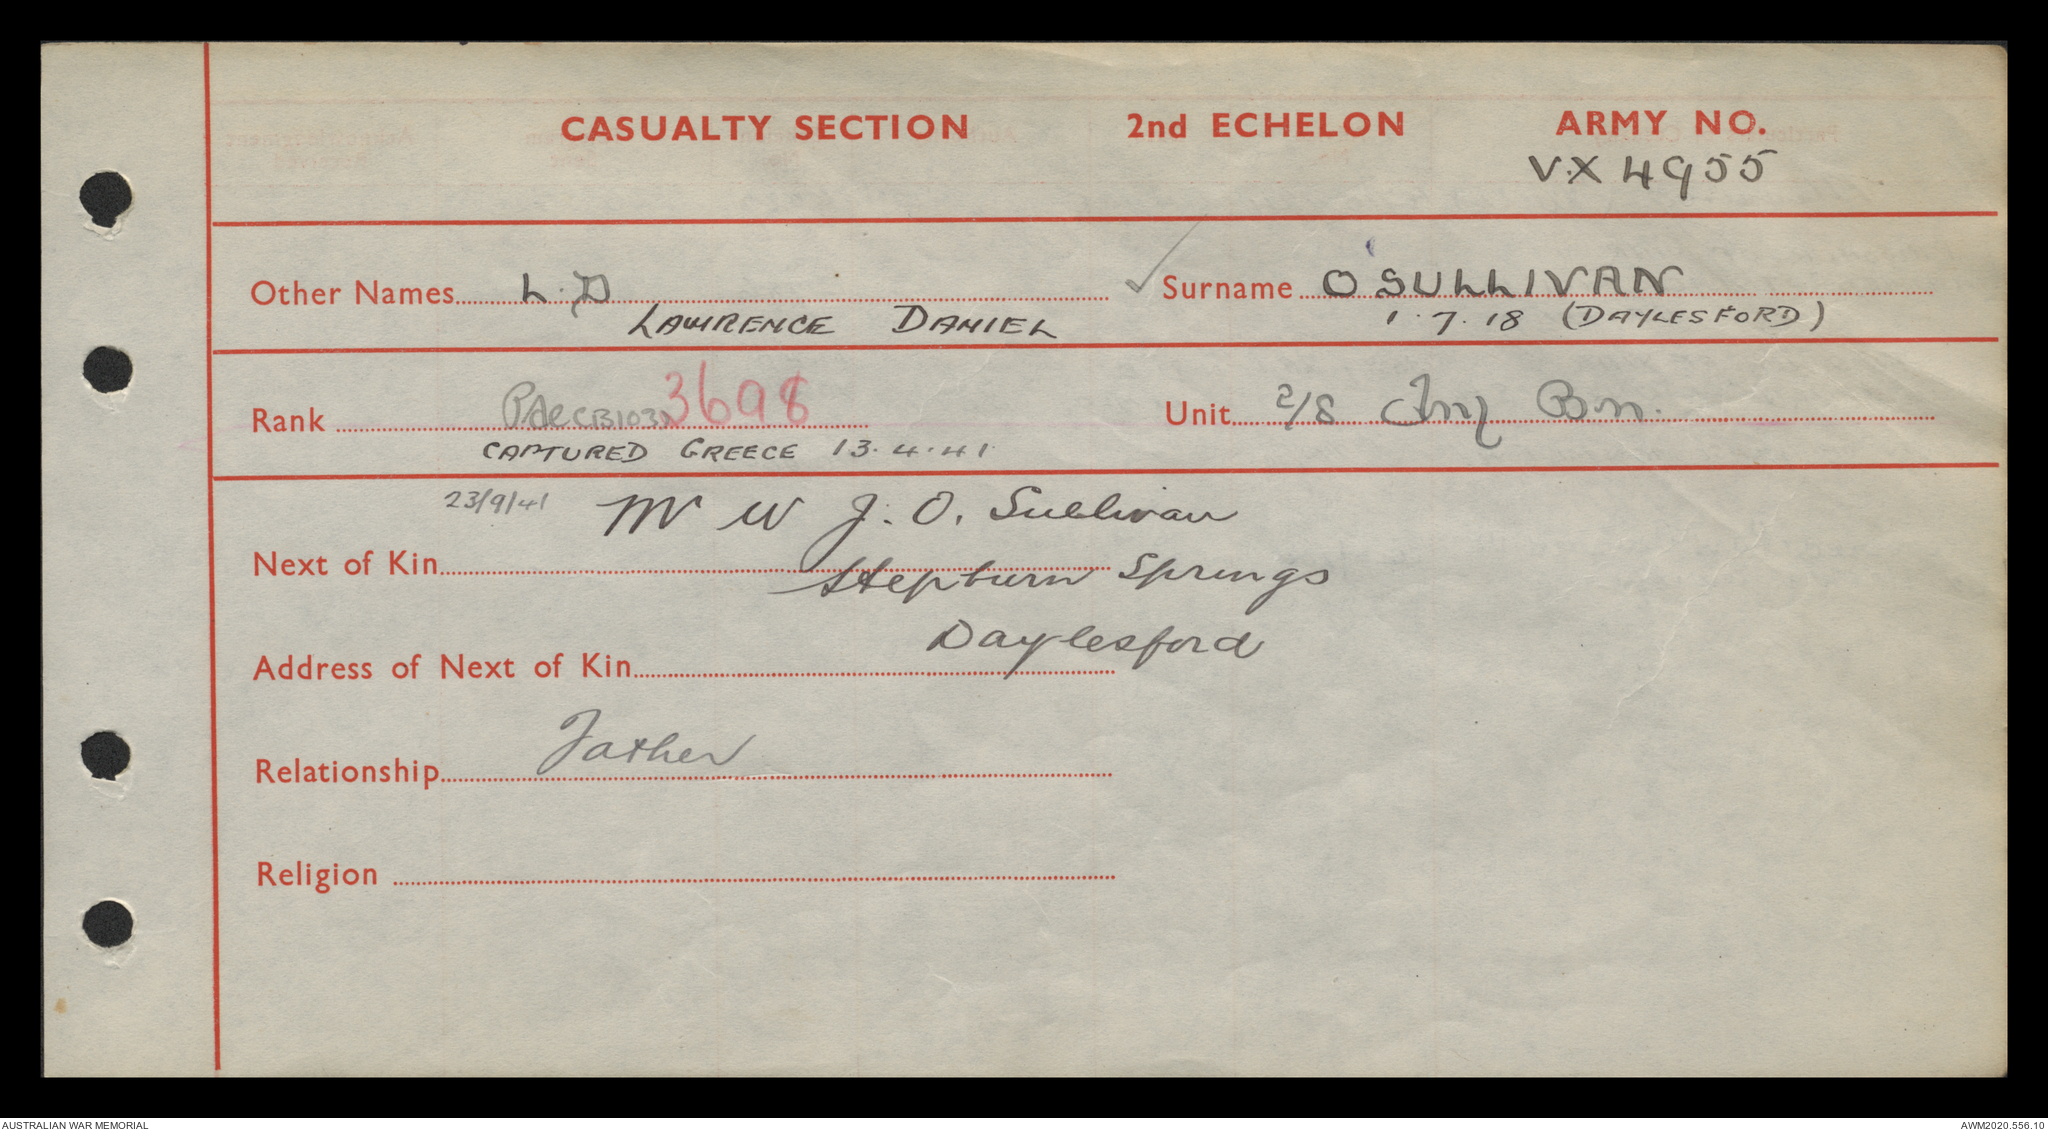 CASUALTY SECTION 2nd ECHELON ARMY NO.
VX 4955
Other Names L.D Surname O'SULLIVAN
LAWRENCE DANIEL 1.7.18 (DAYLESFORD)
Rank Pte CB103 3698 Unit 2/8 Inf Bn.
CAPTURED GREECE 13.4.41
23/9/41 Mr W J. O. Sullivan
Next of Kin
Hepburn Springs
Daylesford
Address of Next of Kin
Relationship Father
Religion
AUSTRALIAN WAR MEMORIAL AWM2020.556.10